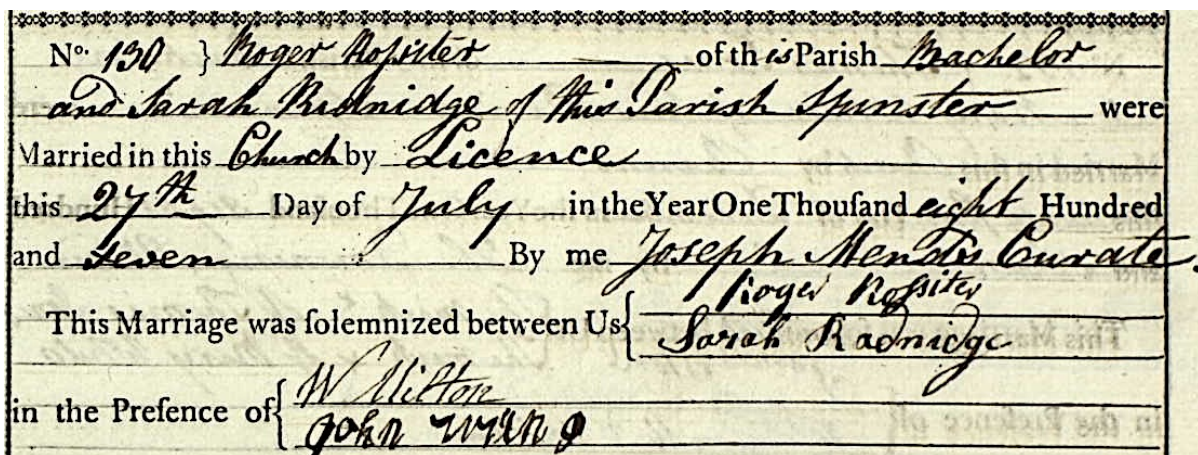 No. 130 } Roger Rossiter of this Parish Bachelor
and Sarah Rudnidge of this Parish Spinster were
Married in this Church by Licence
this 27th Day of July in the Year One Thouſand eight Hundred
and seven By me Joseph Mendis Curate.
Roger Roſsiter
This Marriage was ſolemnized between Us{ Sarah Radnidge
W Milton
in the Preſence of{ John